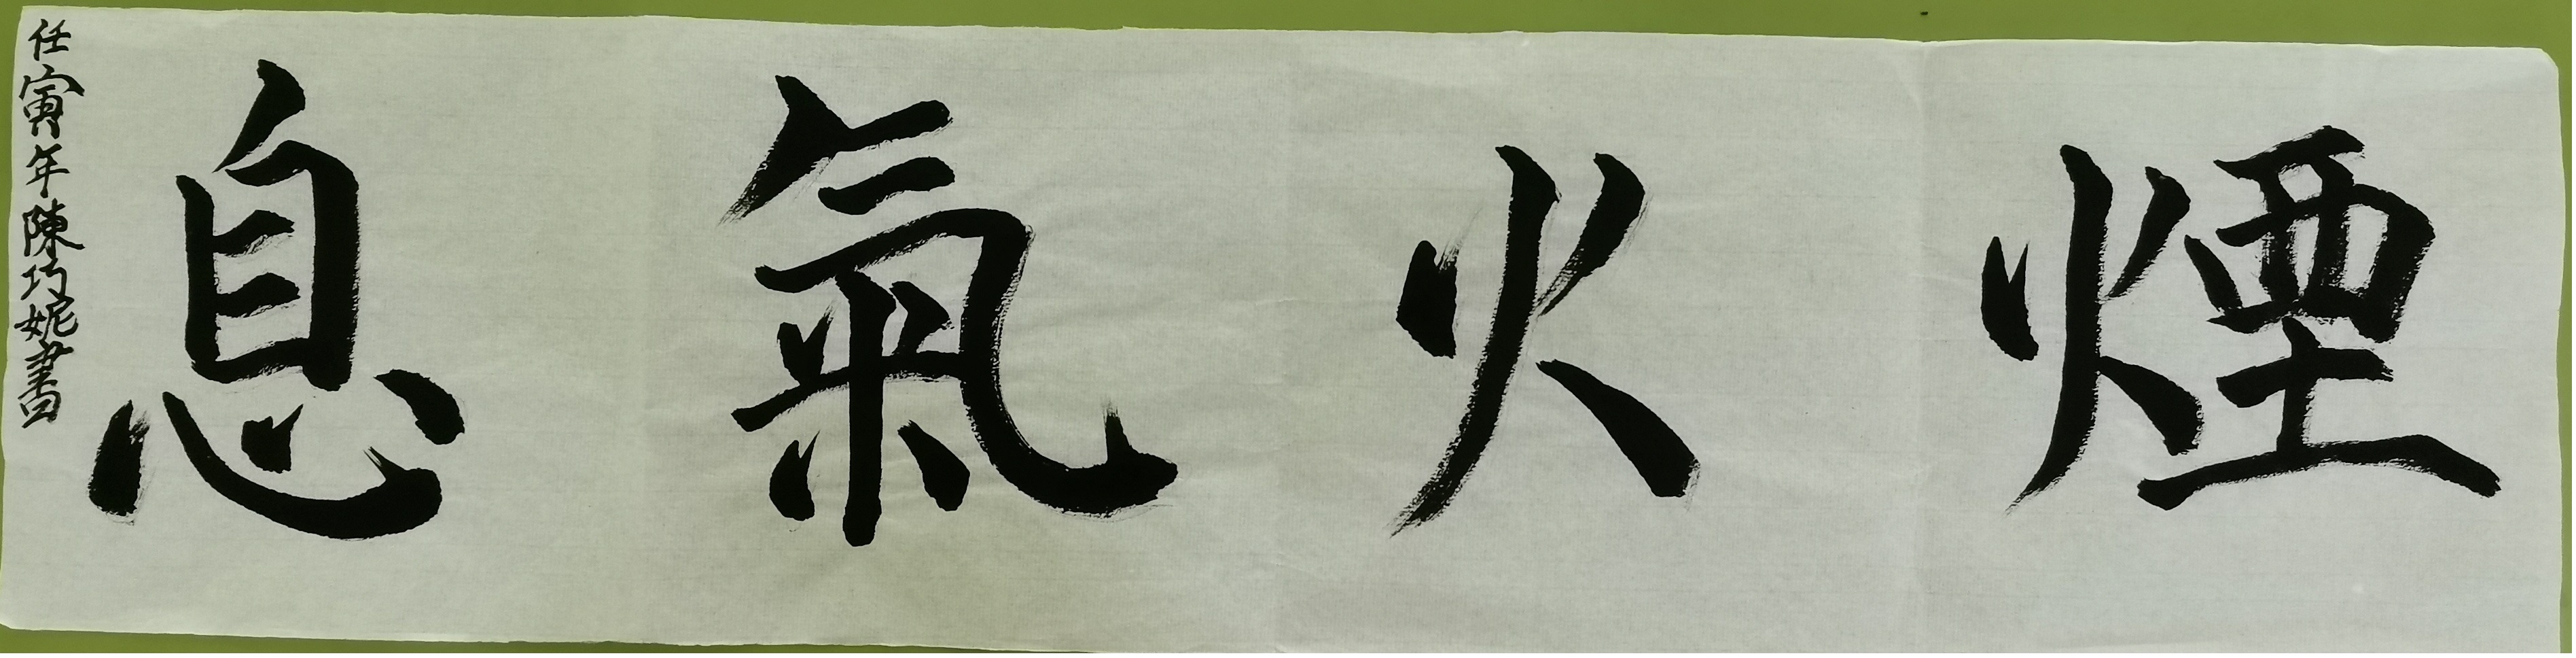 煙火氣息
任寅年陳巧妮書